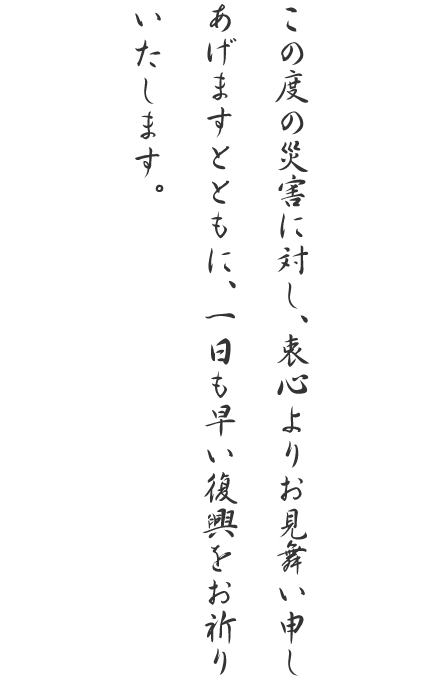 この度の災害に対し、衷心よりお見舞い申し
あげますとともに、一日も早い復興をお祈り
いたします。